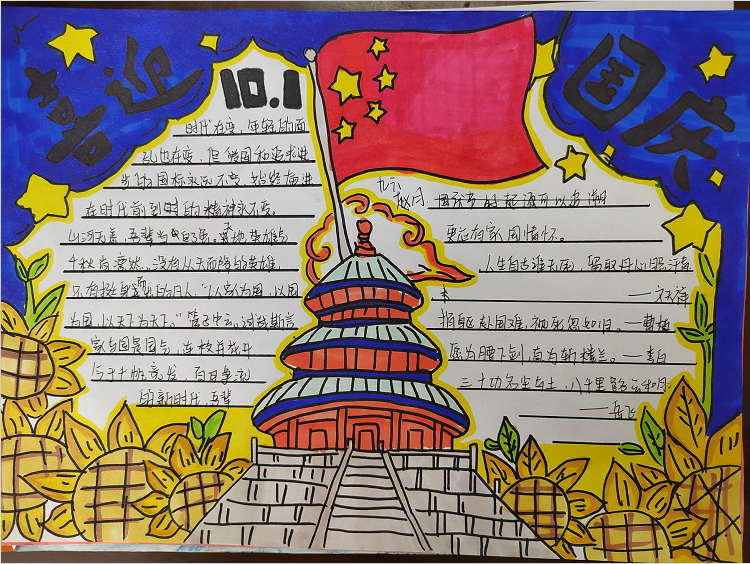 喜迎
国庆
10.1
时代在变，年轻的面
孔也在变，但爱国和追求进
步的国标永远不变，始终奋进
在时代前列的精神永不变。
山河无恙，吾辈当自强，天地英雄气
千秋尚凛然。没有从天而降的英雄，
只有挺身而出的凡人“以家为国，以国
为国，以天下为天下。”管子中云，
家与国是
百日争
的新时代，吾辈
九六
国庆节的起源可以追溯
要怀有家国情怀。
人生自古谁无死，留取丹心照汗青
——文天祥
捐躯赴国难，视死忽如归。——曹植
愿为腰下剑，直为斩楼兰。——李白
三十功名尘与土，八千里路云和月。
——岳飞